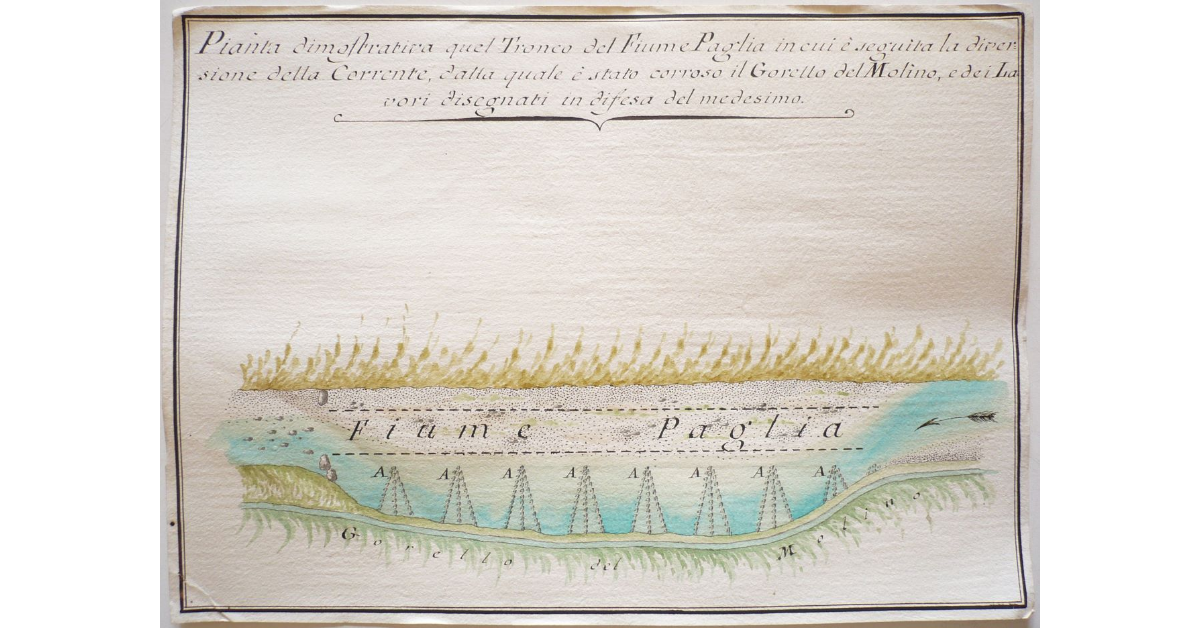 Pianta dimostrativa quel Tronco del Fiume Paglia in cui è seguita la diver
sione della Corrente, dalla quale è stato corroso il Gorello del Molino, e dei La
vori disegnati in difesa del medesimo.
Fiume Paglia
A A A A A A A A
Gorello del Molino